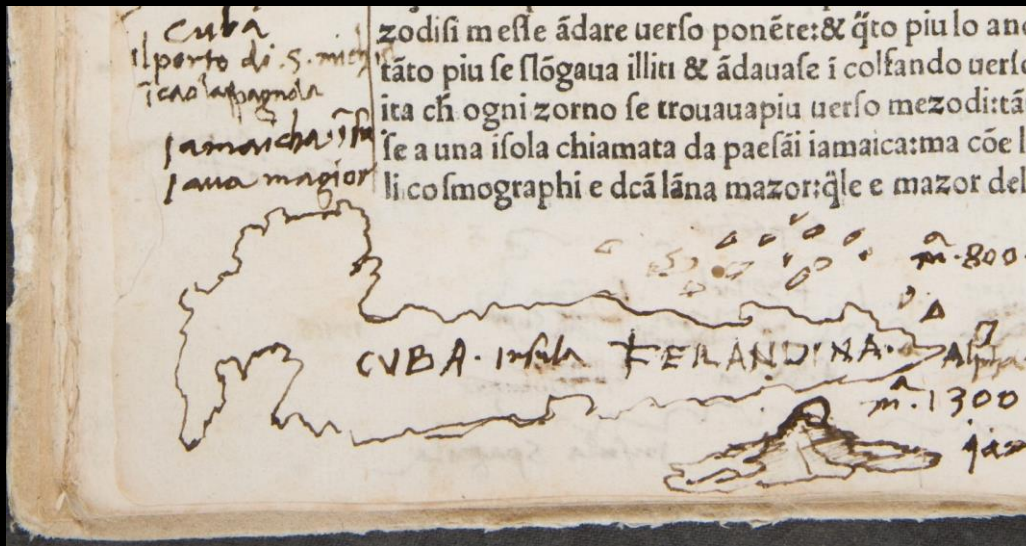 cuba
il porto di .S. mich
ī cao laspagnola
Jamaicha. īsu
Java magior
zodisi messe ādare uerso ponēte:& q̄to piu lo and
tāto piu se slōgaua illiti & ādauase ī colfando uerso
ita ch̄ ogni zorno se trouauapiu uerso mezodi:tā
se a una isola chiamata da paesāi iamaica:ma cōe l
li cosmographi e dcā lāna mazor:q̄le e mazor del
m̄.800.
CVBA. Insula FERANDINA. Alpha
m̄.1300
jam